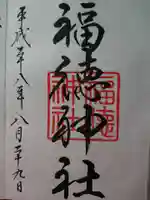 福徳神社
平成二十八年八月二十九日